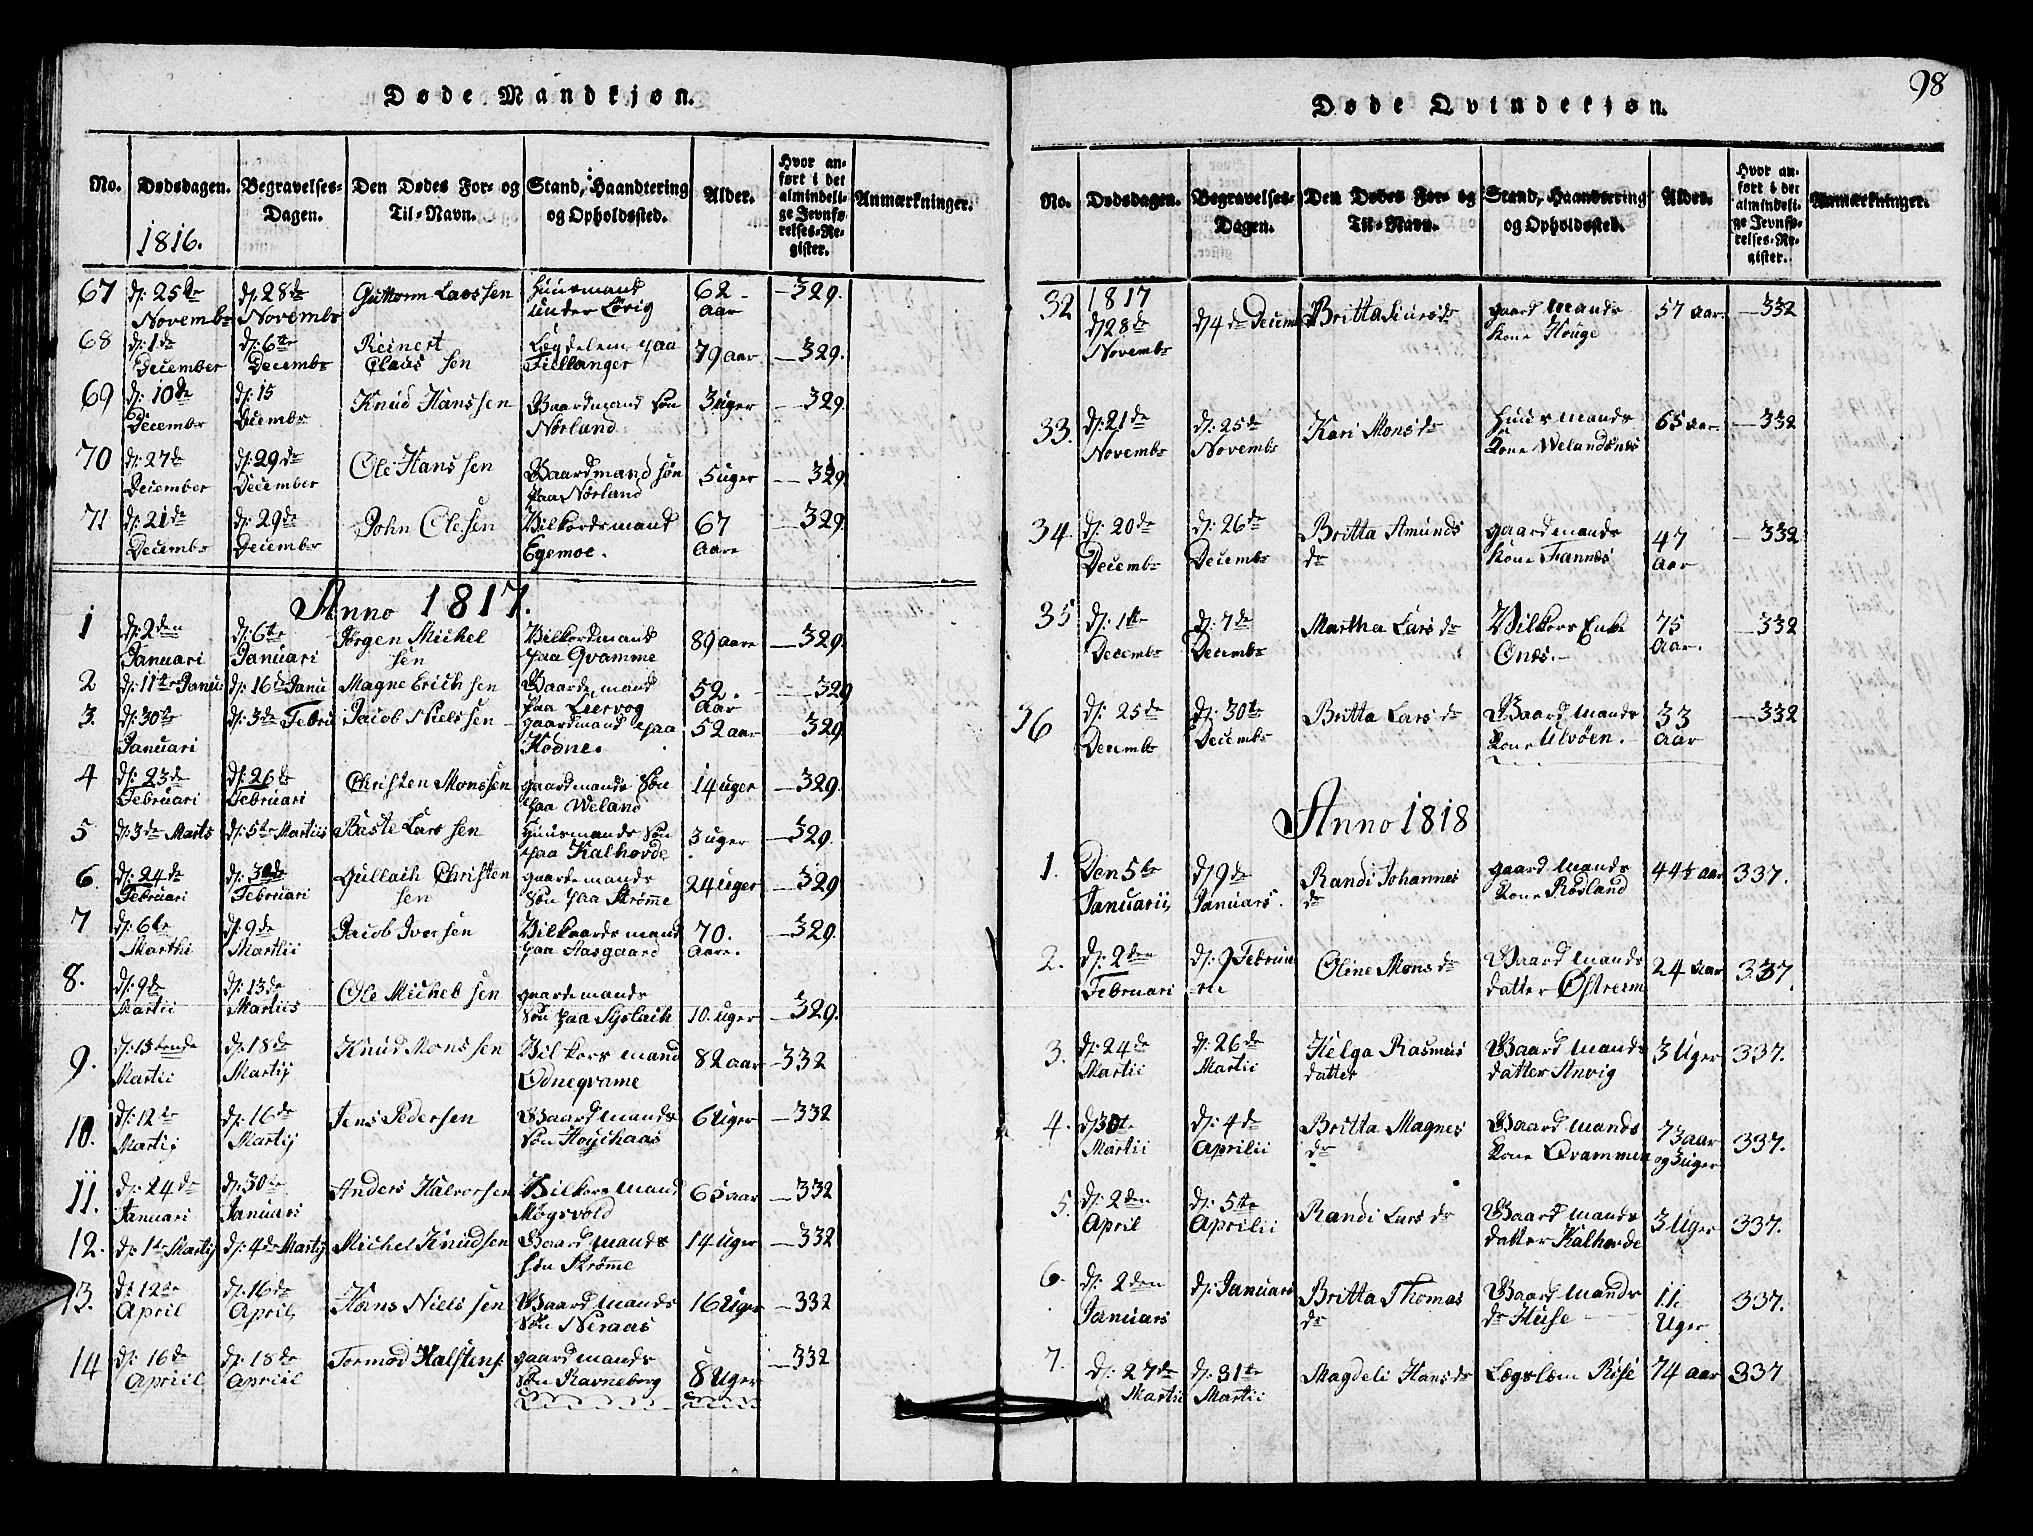 Døde Mandkjøn.
No. Dødsdagen. Begravelses-Dagen. Den Dødes For- og Til-Navn. Stand, Haandtering og Opholdssted. Alder. Hvor anført i det almindelige Jevnførelses-Register. Anmærkninger.
1816.
67 d: 25de Novembr d: 28de Novembr Guttorm Larssen Huusmand under Lörig 62 Aar 329.
68 d: 1de December d: 6te Decembr Reinert Claussen Lægdelem paa Fiellanger 79 aar 329.
69 d: 10de Decembr d: 15 Decembr Knud Hanssen Gaardmand Søn Nørland 3 uger 329.
70 d: 27de December d: 29de December Ole Hanssen Gaardmand søn paa Nørland 5 uger 329
71 d: 21de Decembr d: 29de Decembr John Olesen Vilkordsmand Egemoe. 67 Aar 329
Anno 1817.
1 d: 2den Januari d: 6te Januari Jørgen Michelsen Vilkordmand paa Qvamme 89 aar 329.
2 d: 11te Janu d: 16de Janu Magne Erichsen Gaardemand paa Leervog 52. Aar 329
3. d: 30te Januari d: 3de Febru Jacob Nielssen gaardmand paa Hodne. 52 aar 329
4 d: 23de Februari d: 26de Februari Christen Monssen gaardmands Søn paa Weland 14 uger 329.
5 d: 3de Marts d: 5te Martiis Baste Larssen Huusmands Søn paa Kalhovde 3 uger 329.
6. d: 24de Februari d: 30de Februari Gullach Christensen gaardemands Søn paa Strømme 24 uger 329
7 d: 6te Marthi d: 9de Marthii Jacob Iversen Vilkaards mand paa Aasgaard 70. Aar. 329.
8. d: 9de Martii d: 13de Martiis Ole Michelsen gaardemands Søn paa Syslach 10. uger 329.
9. d: 13tende Martii d: 18de Martij Knud Monssen Vilkors mand Odneqvame 82 aar 332
10. d: 12te Martij d: 16de Martij Jens Pedersen Gaardmands Søn Høyihaas 6 Uger 332
11. d: 24de Januari d: 30te Januari Anders Halvorsen Vilkors mand Møgsvold 65 aar 332
12. d: 1te Martij d: 4de Martij Michel Knudsen Gaardmands Søn Strømme 14 Uger 332
13. d: 12te April d: 16de April Hans Nielssen Gaardmands Søn Neraas 16 Uger 332
14 d: 16de Apriil d: 18de Apriil Tormod Halstens: gaardmands Søn Ravneberg 8 Uger 332
98
Døde Qvindekjøn.
No. Dødsdagen. Begravelses-Dagen. Den Dødes For- og Til-Navn. Stand, Haandtering og Opholdssted. Alder. Hvor anført i det almindelige Jevnførelses-Register. Anmærkninger.
32 1817 d 28de Novembr d 4de Decemb Britta Siursdr gaardmands kone Houge 57 aar. 332
33. d: 21de Novembr d: 25de Novembr Kari Monsdr Huusmands kone Welandsnes 65 aar. 332
34. d: 20de Decembr d: 26de Decembr Britta Amundsdr gaardmands kone Fannæs 47 Aar 332
35 d: 1te Decembr d: 7de Decembr Martha Larsdr Vilkors Enke Onæs. 75 Aar. 332
36 d: 25de Decembr d: 30te Decembr Britta Larsdr Gaardmands kone Ulvøen. 33 Aar 332
Anno 1818
1. Den 5te Januarii, d 9de Januars. Randi Johannesdr gaardmands kone Rødland 44½ aar 337.
2. d: 2den Februari d: 9 Februarie Oline Monsdr Gaardmands datter Østrem 24 aar 337.
3. d: 24de Martii d: 26de Martii Helga Rasmusdatter Gaardmands datter Anvig 3 Uger 337.
4. d 30te Martii d: 4de Aprilii Britta Magnesdr Gaardmands kone Qvammen 73 aar og 3 uger 337.
5. d: 2den April d: 5te Aprilii Randi Larsdr Gaardmands datter Kalhovde 3 Uger 337.
6. d: 2den Januars d: Januars Britta Thomasdr Gaardmands dr Huse 11 Uger 337.
7. d: 27de Martii d: 31te Martii Magdeli Hansdr Lægslem Røse 74 aar 337